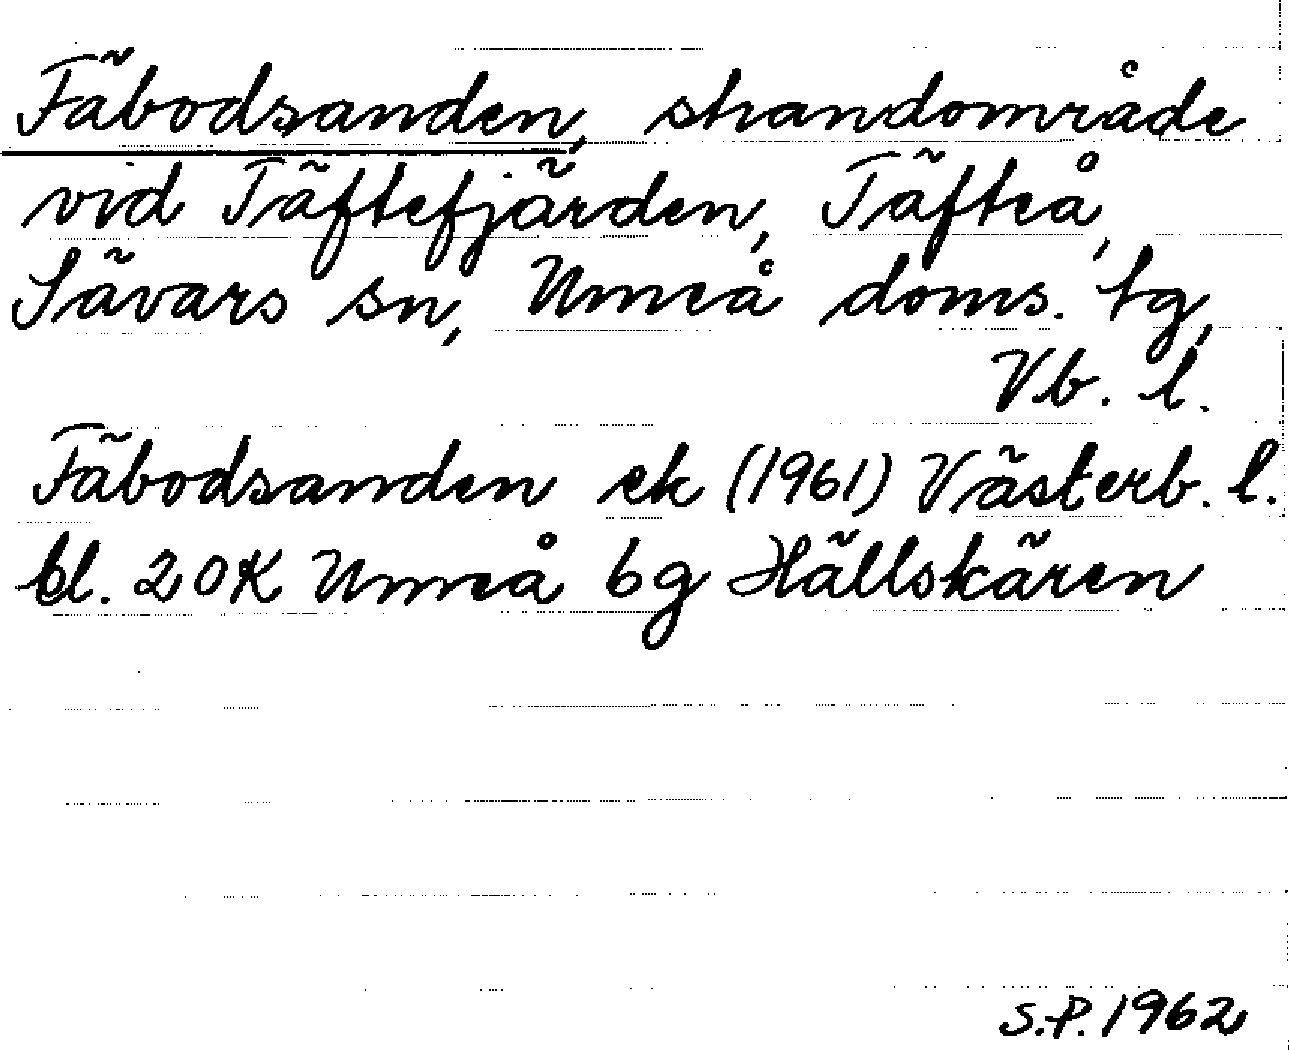 Fäbodsanden, strandområde
vid Täftefjärden, Täfteå,
Sävars sn, Umeå doms. tg,
Vb. l.
Fäbodsanden ek (1961) Västerb. l.
bl. 20K Umeå 6g Hällskären
S.P. 1962